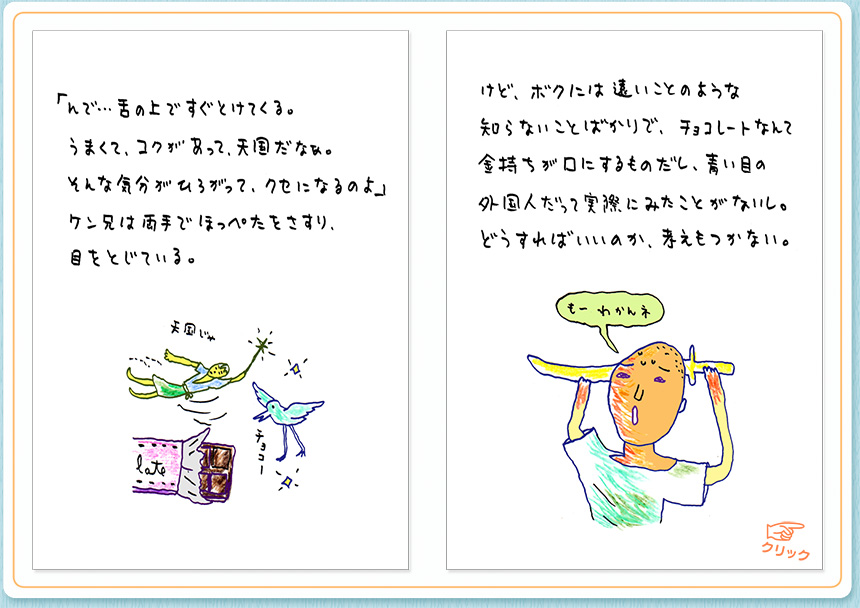 「んで…舌の上ですぐとけてくる。
うまくて、コクがあって、天国だなぁ。
そんな気分がひろがって、クセになるのよ」
ケン兄は両手でほっぺたをさすり、
目をとじている。
天国じゃ
チョコー
late
けど、ボクには遠いことのような
知らないことばかりで、チョコレートなんて
金持ちが口にするものだし、青い目の
外国人だって実際にみたことがないし。
どうすればいいのか、考えもつかない。
もー わかんネ
クリック